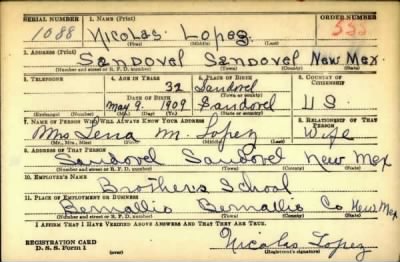 SERIAL NUMBER 1. NAME (Print) ORDER NUMBER
1088 Nicolas Lopez
(First) (Middle) (Last)
2. ADDRESS (Print)
Sandovel Sandovel New Mex.
(Number and street or R. F. D. number) (Town) (County) (State)
3. TELEPHONE 4. AGE IN YEARS 5. PLACE OF BIRTH 6. COUNTRY OF CITIZENSHIP
32 Sandovel
DATE OF BIRTH (Town or county)
May 9 1909 Sandovel U S
(Exchange) (Number) (Mo.) (Day) (Yr.) (State or country)
7. NAME OF PERSON WHO WILL ALWAYS KNOW YOUR ADDRESS 8. RELATIONSHIP OF THAT PERSON
Mrs Lena M. Lopez Wife
(Mr., Mrs., Miss) (First) (Middle) (Last)
9. ADDRESS OF THAT PERSON
Sandovel Sandovel New Mex
(Number and street or R. F. D. number) (Town) (County) (State)
10. EMPLOYER'S NAME
Brothers School
11. PLACE OF EMPLOYMENT OR BUSINESS
Bernallio Bernallio Co New Mex
(Number and street or R. F. D. number) (Town) (County) (State)
I AFFIRM THAT I HAVE VERIFIED ABOVE ANSWERS AND THAT THEY ARE TRUE.
REGISTRATION CARD
D. S. S. Form 1 (over) Nicolas Lopez
(Registrant's signature)